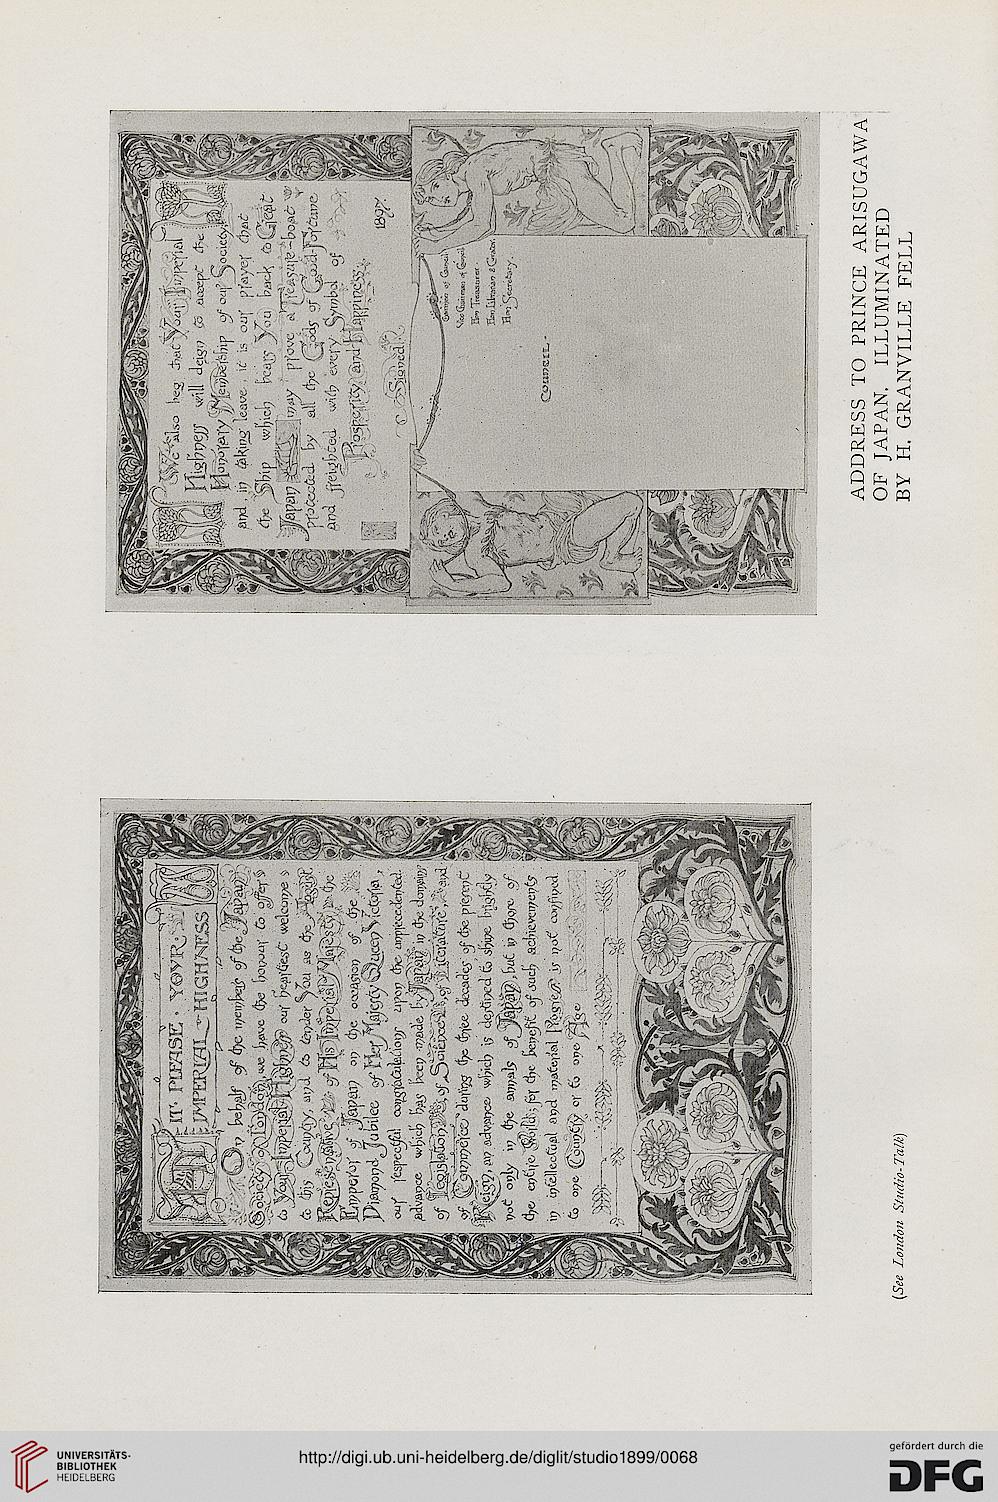 MAY IT · PLEASE · YOVR ·
IMPERIAL HIGHNESS
On behalf of the members of the Japan
Society of London, we have the honour to offer
to Your Imperial Highness our heartiest welcome
to this Country, and to tender You as the August
Representative of His Imperial Majesty the
Emperor of Japan on the occasion of the
Diamond Jubilee of Her Majesty Queen Victoria,
our respectful congratulations upon the unprecedented
advance which has been made by Japan in the domain
of Legislation, of Science, of Literature, and
of Commerce during the three decades of the present
Reign, an advance which is destined to shine brightly
not only in the annals of Japan, but in those of
the entire World; for the benefit of such achievements
in intellectual and material Progress is not confined
to one Country or to one Age
We also beg that Your Imperial
Highness will deign to accept the
Honorary Membership of our Society,
and in taking leave, it is our prayer that
the Ship which bears You back to Great
Japan may prove a Treasure-boat
protected by all the Gods of Good-Fortune
and freighted with every Symbol of
Prosperity and Happiness.
1897.
Signed.
Chairman of Council
Vice Chairman of Council
Hon. Treasurer.
Hon. Librarian &
Hon. Secretary.
COUNCIL.
ADDRESS TO PRINCE ARISUGAWA
OF JAPAN. ILLUMINATED
BY H. GRANVILLE FELL
(See London Studio-Talk)
UNIVERSITÄTS-
BIBLIOTHEK
HEIDELBERG
http://digi.ub.uni-heidelberg.de/diglit/studio1899/0068
gefördert durch die
DFG